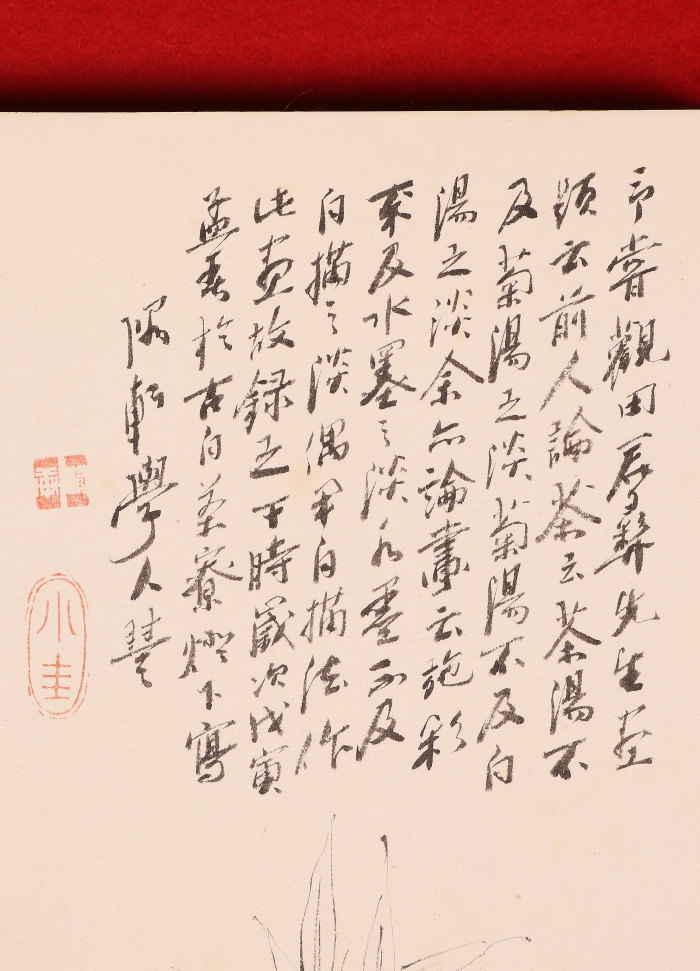 予嘗觀田辰彝先生畫
題云前人論茶云茶湯不
及菊湯之淡菊湯不及白
湯之淡余亦論畫云施彩
不及水墨之淡水墨不及
白描之淡偶用白描法作
此畫故錄之于時歲次戊寅
孟春於古白茶寮燈下寫
陽軒學人慧
小圭